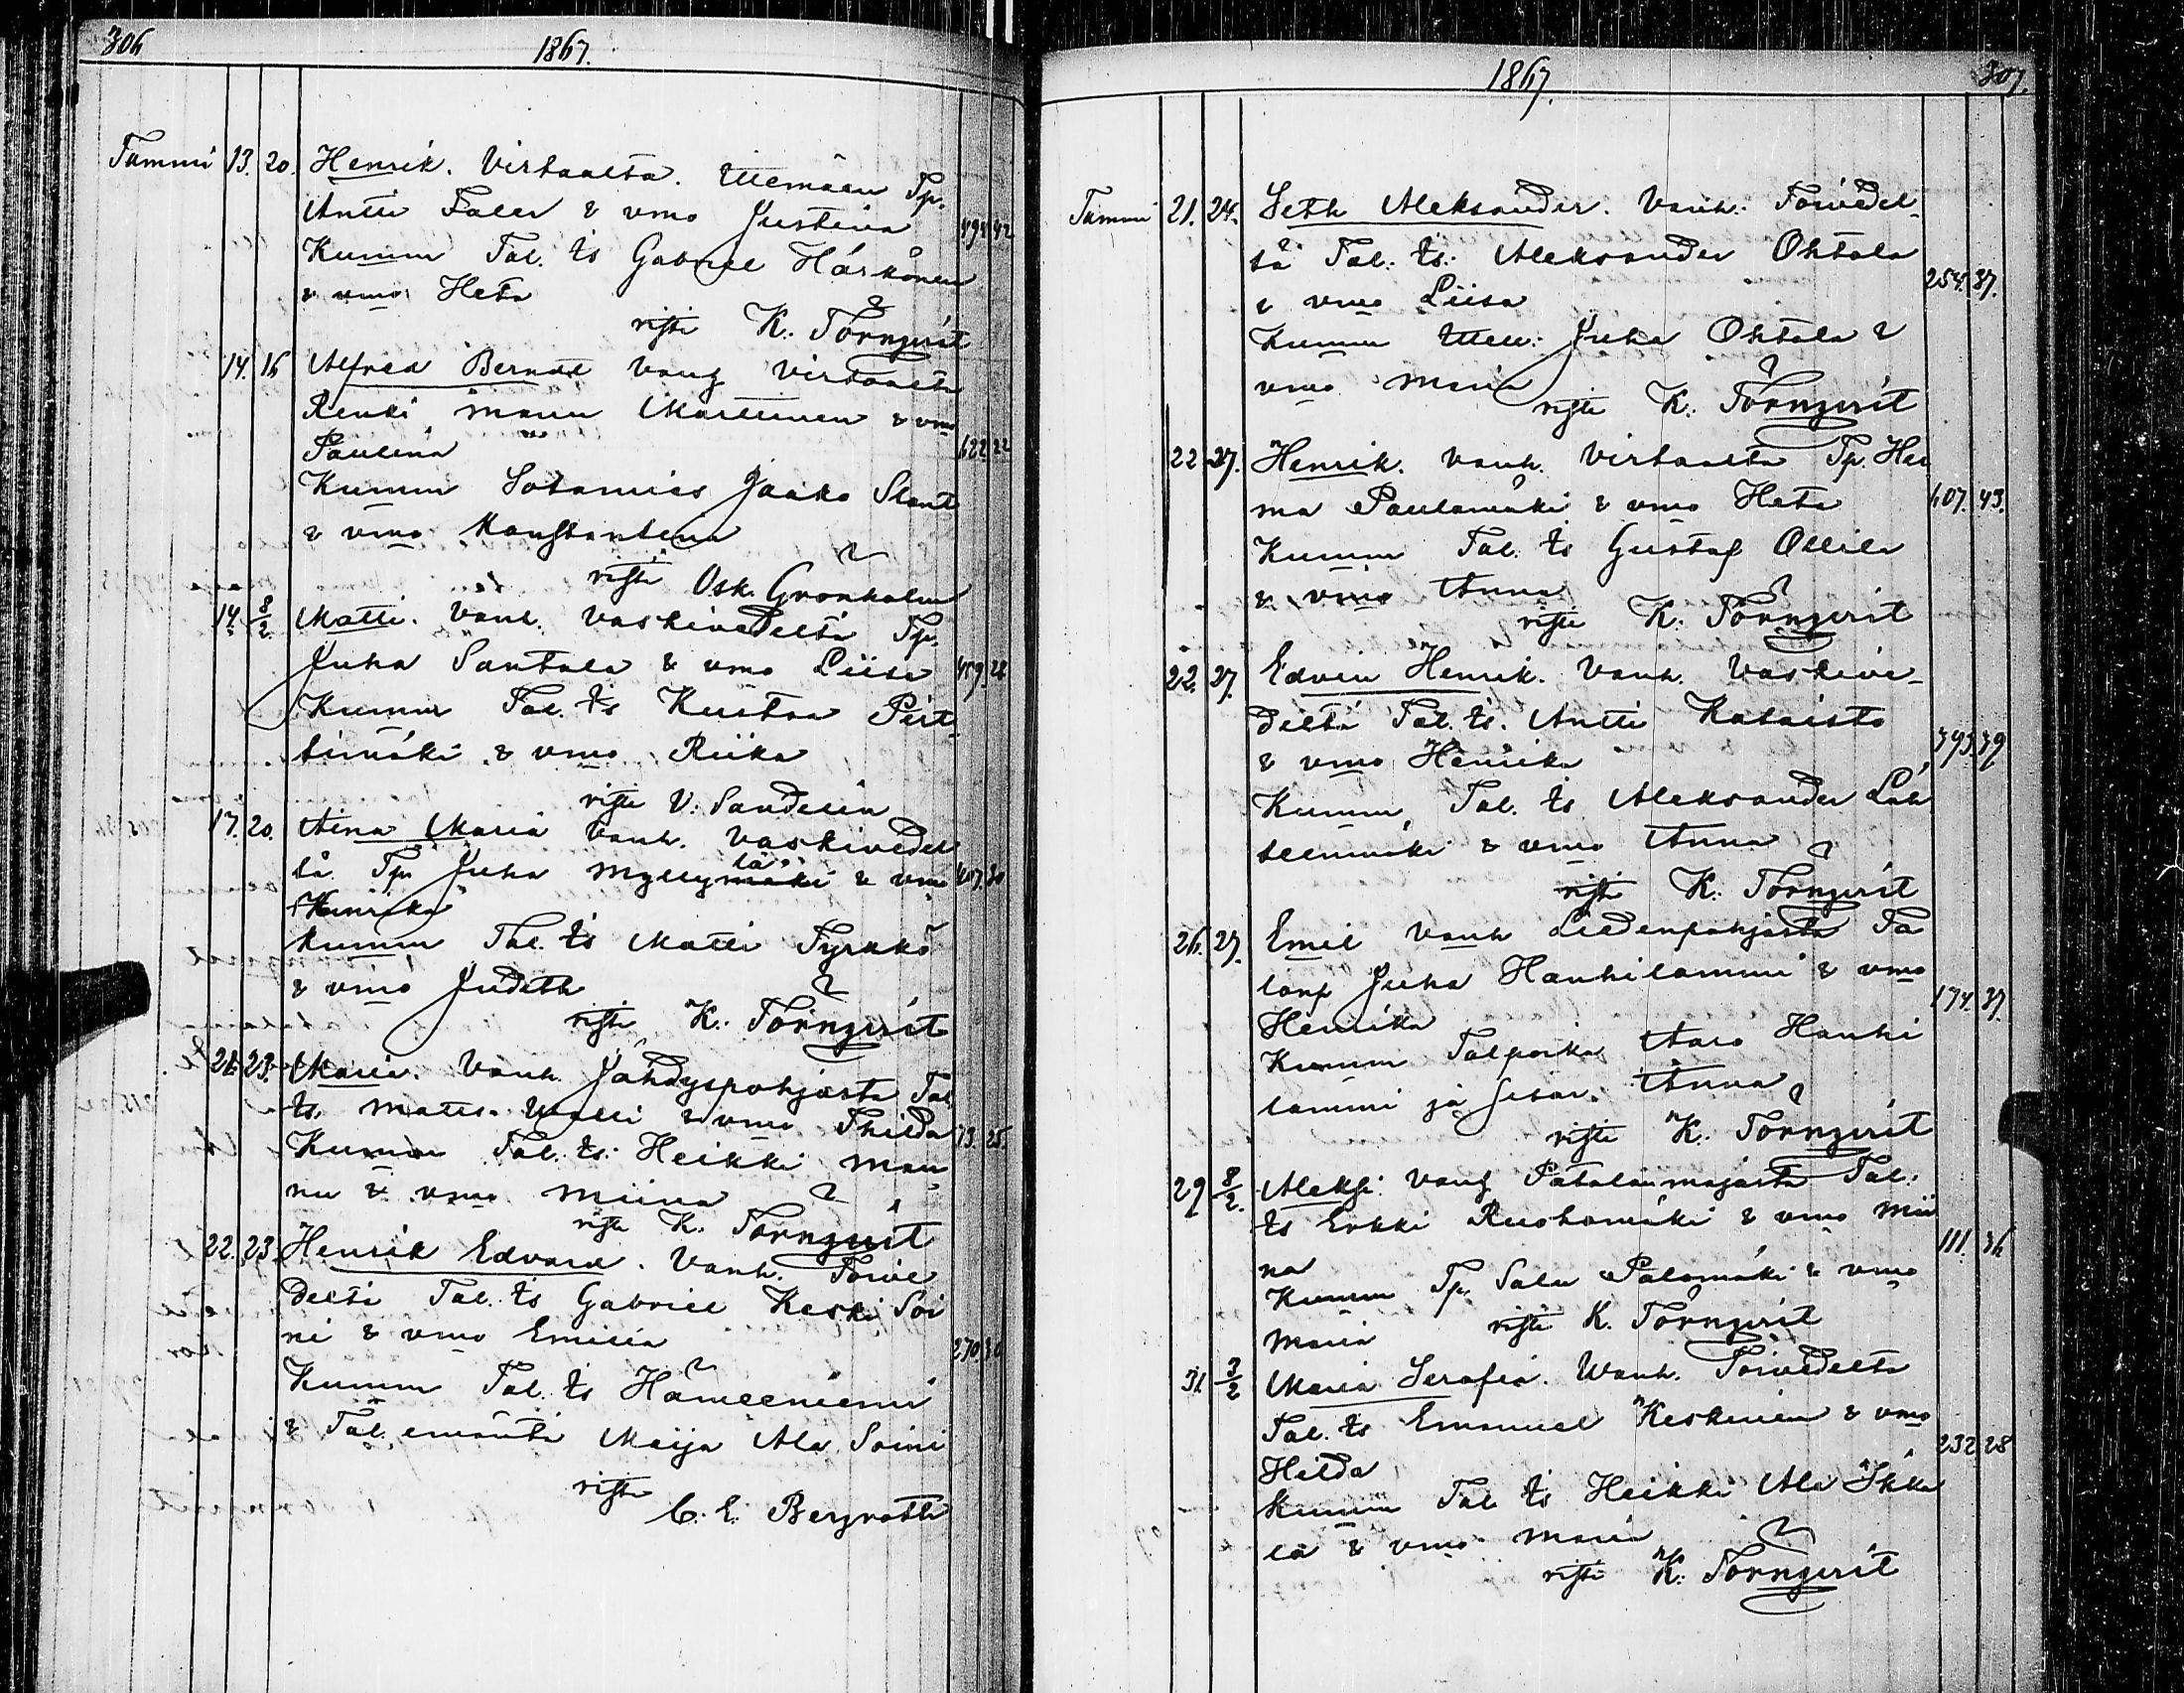 306
1867.
Tammi 13. 20. Henrik. Virtaalta. Ttp.
Antti Faler & vmo Justiina
Kumm Tal. ts Gabriel Härkönen
& vmo Heta
risti K. Törnqvist
14. 16 Alfred Bernad Vanh Virtaalta
Renki Manu Marttinen & vmo
Pauliina 622 22
Kumm Sotamies Jaako Slant
& vmo Konstantina
risti Osk. Grönholm
14. 8/2 Matti. Vanh. Vaskivedeltä Tp.
Juha Santala & vmo Liisa 459. 28
Kumm Tal. ts Kustaa Pirt-
timäki & vmo Riika
risti V. Sandelin
17. 20. Aina Maria Vanh. Vaskivedel
tä. Tp. Juha Myllymäki lä & vmo 407. 30
Henrika
Kumm Tal. ts Matti Tyrkkö
& vmo Judith
risti K. Törnqvist
21. 23. Maria. Vanh. Jähdyspohjasta Tal.
ts. Matts Uotti & vmo Thilda 73. 25.
Kumm Tal. ts. Heikki Man
nu & vmo Miina
risti K. Törnqvist
22. 23 Henrik Edvard. Vanh. Toive
deltä Tal. ts Gabriel Keski Soi
ni & vmo Emilia 270 30
Kumm Tal. ts Hämeeniemi
& Tal. emäntä Maija Ala Soini
risti
C. E. Bergroth
1867.
307.
Tammi 21. 24. Seth Aleksander. Vanh. Toivedel-
tä Tal. ts. Aleksander Ohtola
& vmo Liisa 254. 37.
Kumm Juha Ohtola &
vmo Maria
risti K. Törnqvist
22 27. Henrik. Vanh. Virtaalta Tp. Her
ma Paulamäki & vmo Heta 607. 43.
Kumm Tal. ts Gustaf Ollila
& vmo Anna
risti K. Törnqvist
22. 27. Edvin Henrik. Vanh. Vaskive-
deltä Tal. ts. Antti Kataisto
& vmo Henrika 393 39
Kumm Tal. ts Aleksander Läh
teenmäki & vmo Anna
risti K. Törnqvist
26. 27. Emil Vanh Liedenpohjasta Ta
lonp Juha Hauhilammi & vmo
Henrika 174. 37.
Kumm Talpoika Aaro Hauhi
lammi ja sisar Anna
risti K. Törnqvist
29 8/2. Aleksi. Vanh Patalanmajasta Tal.
ts Erkki Ruohomäki & vmo Mii
na 111. 36
Kumm Tp. Salu Palomäki & vmo
Maria risti K. Törnqvist
31. 3/2 Maria Serafia. Wanh. Toivedeltä
Tal. ts Emanuel Keskinen & vmo
Hilda 232 28
Kumm Tal. ts Heikki Ala Ikka
la & vmo Maria
risti K. Törnqvist